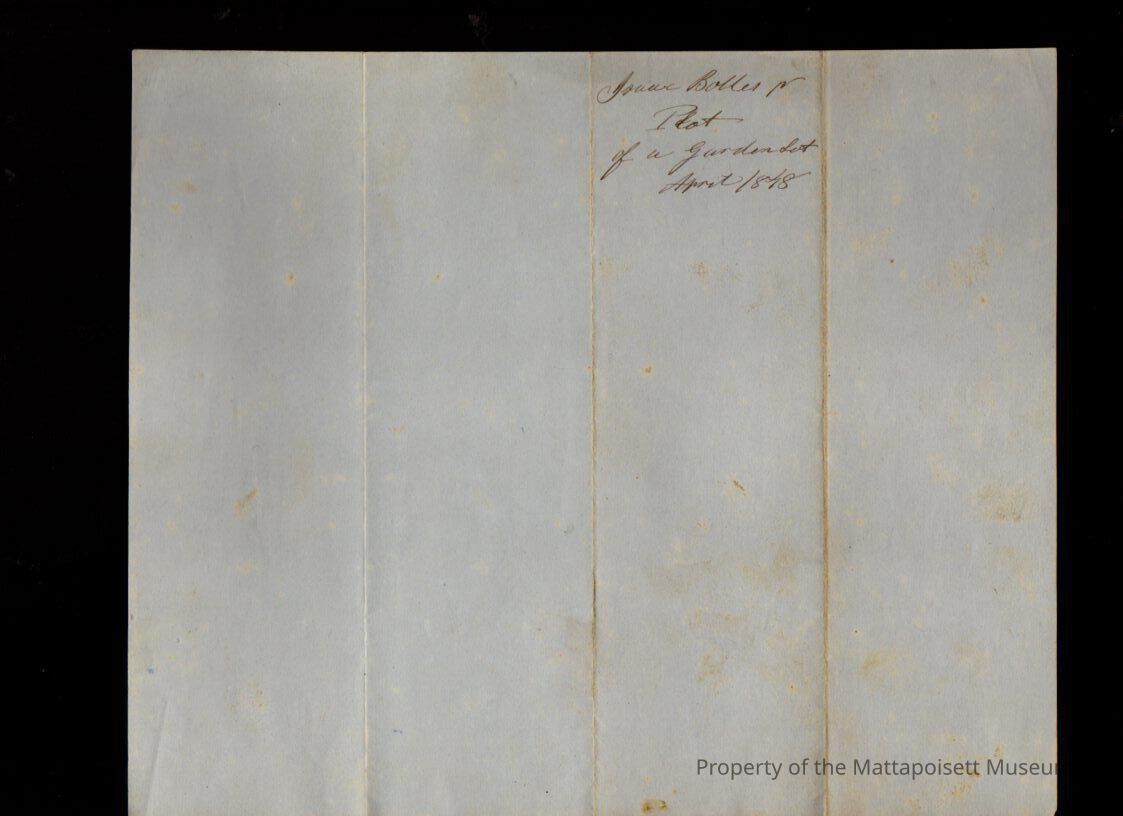 Isaac Bolles Jr
Plot
of a Garden Lot
April 1848
Property of the Mattapoisett Museum